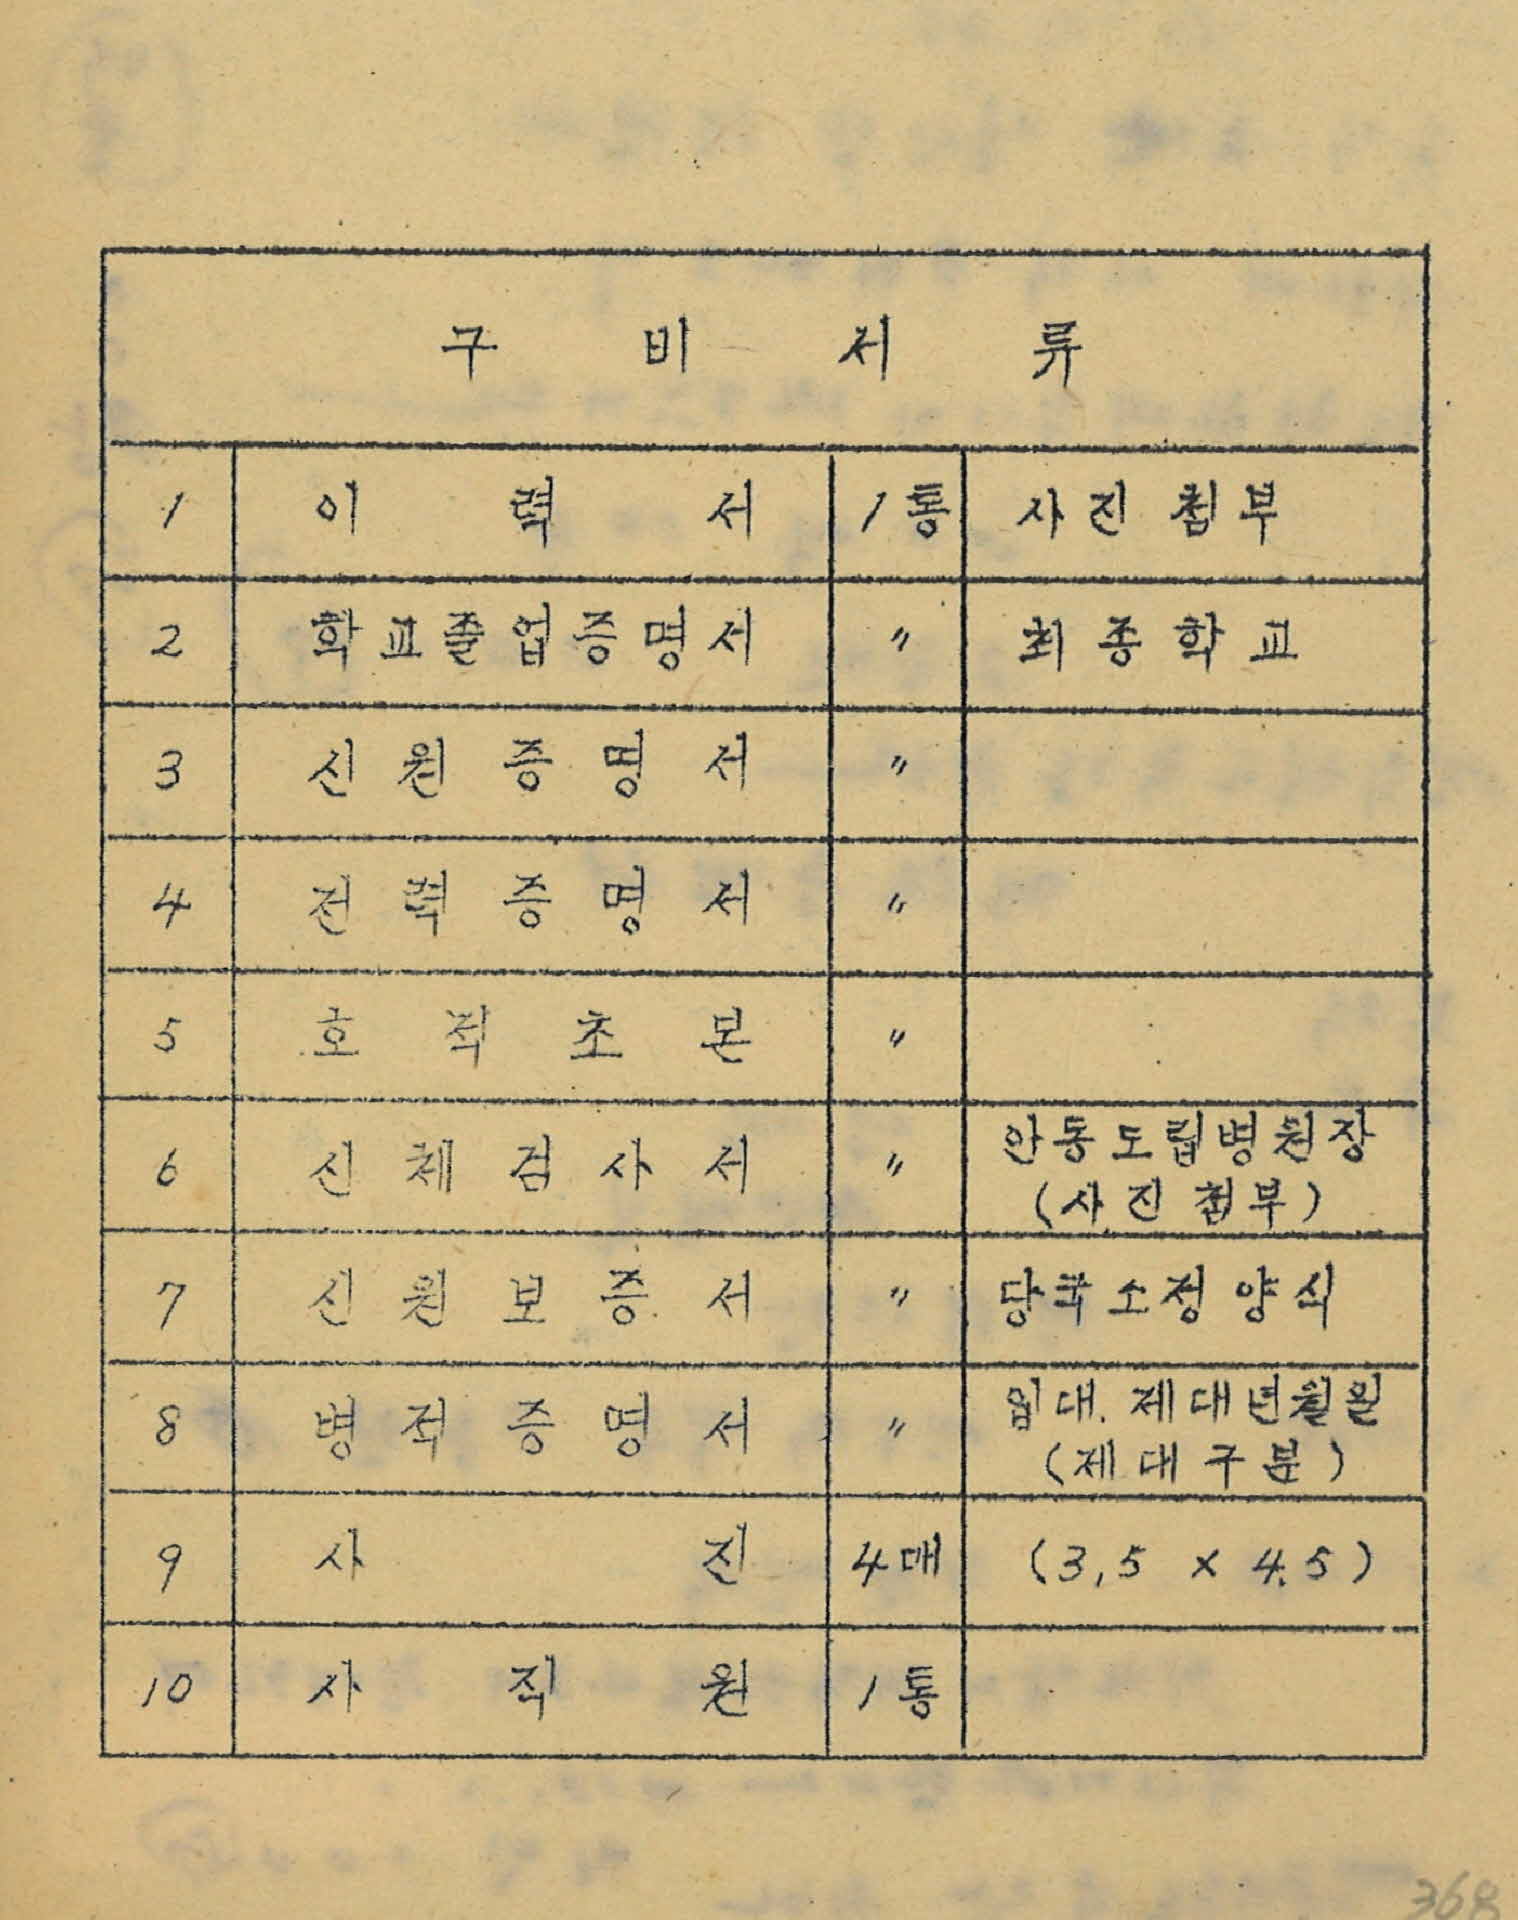 구비서류
1 이력서 1통 사진첨부
2 학교졸업증명서 〃 최종학교
3 신원증명서 〃
4 전력증명서 〃
5 호적초본 〃
6 신체검사서 〃 안동도립병원장
(사진첨부)
7 신원보증서 〃 당국소정양식
8 병적증명서 〃 입대. 제대년월일
(제대구분)
9 사진 4매 (3,5 × 4.5)
10 사직원 1통
368